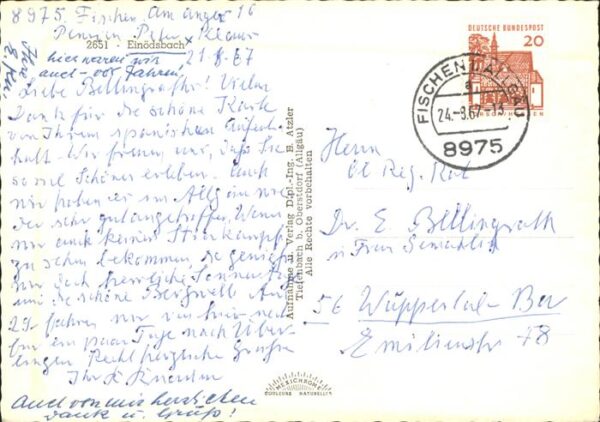 8975 Fischen, Am Anger 16
Pension Peter Klaus
2651 · Einödsbach
21.8.67
hier waren wir
auch - vor Jahren!
Liebe Bellingraths! Vielen
Dank für die schöne Karte
von Ihrem spanischen Aufent-
halt. Wir freuen uns, daß Sie
so viel Schönes erleben. Auch
wir haben es im Allgäu wie-
der sehr gut angetroffen. Wenn
wir auch keinen Stierkampf
zu sehen bekommen, so genießen
wir doch herrliche Sonnentage
und die schöne Bergwelt. Am
29. fahren wir von hier noch
für ein paar Tage nach Über-
lingen. Recht herzliche Grüße
Ihr
Auch von mir herzlichen
Dank u. Gruß!
Ihre
Aufnahme u. Verlag Dipl.-Ing. B. Atzler
Tiefenbach b. Oberstdorf (Allgäu)
Alle Rechte vorbehalten
DEUTSCHE BUNDESPOST
20
FISCHEN i. ALLGÄU
a
24.-8.67-13
8975
Herrn
Reg. Rat
Dr. E. Bellingrath
u. Frau Gemahlin
56 Wuppertal-Bar
Emilienstr. 78
MEXICHROME
COULEURS NATURELLES